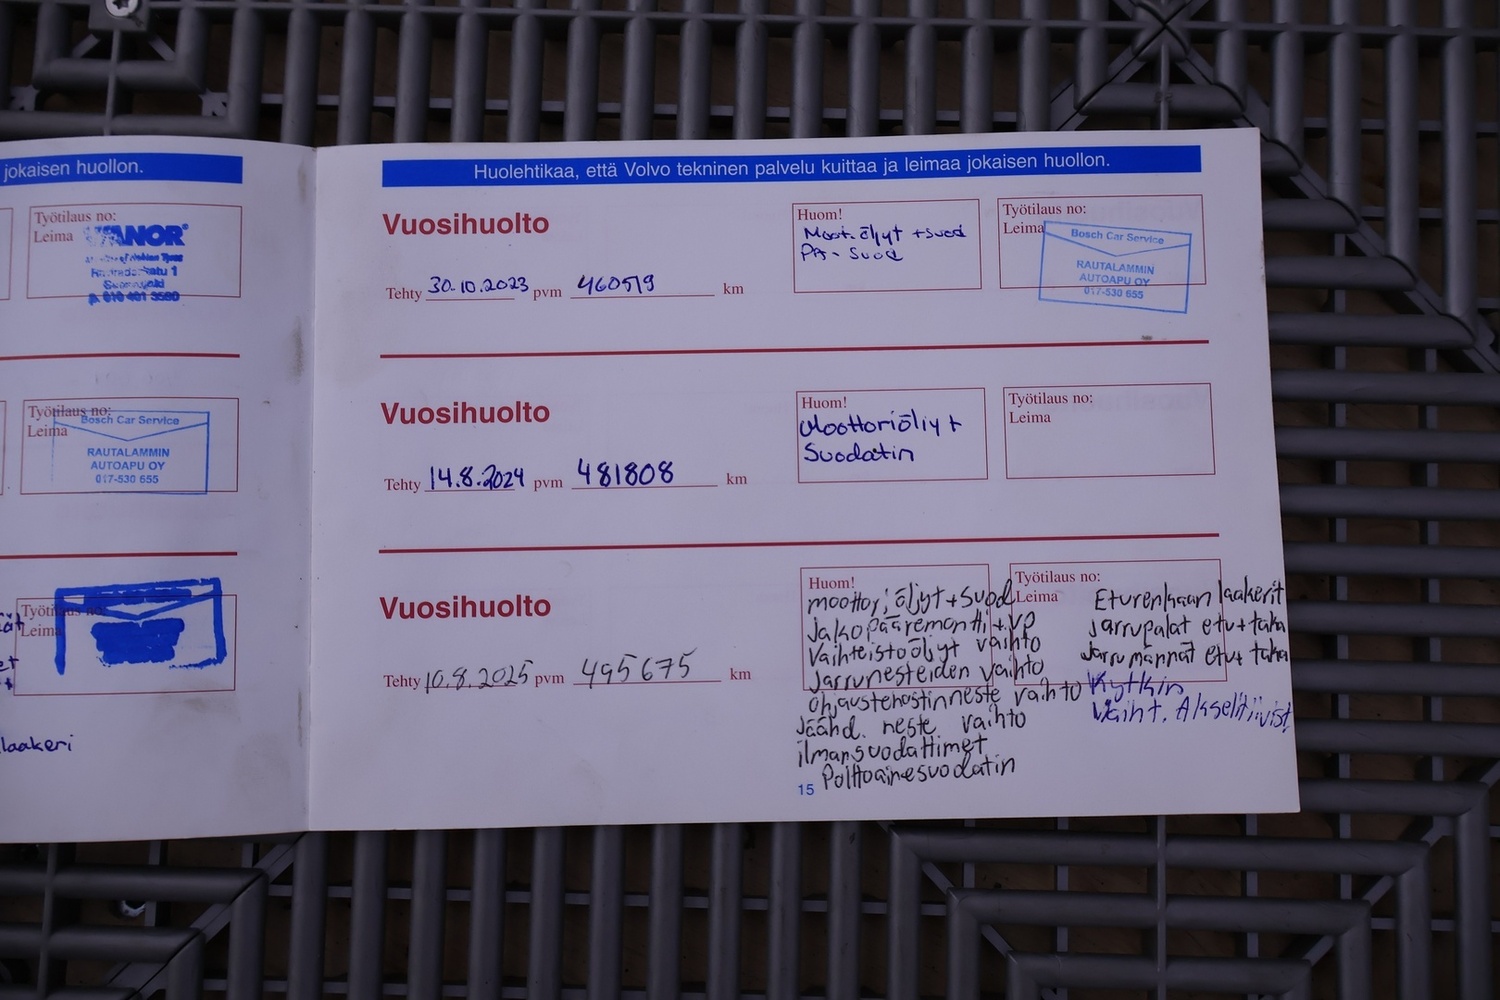 jokaisen huollon.
Työtilaus no:
Leima
VIANOR
p. 010 401 3580
Työtilaus no:
Leima
Bosch Car Service
RAUTALAMMIN
AUTOAPU OY
017-530 655
Työtilaus no:
Leima
laakeri
Huolehtikaa, että Volvo tekninen palvelu kuittaa ja leimaa jokaisen huollon.
Vuosihuolto
Tehty 30.10.2023 pvm 460519 km
Huom!
Moot. öljyt + suod
PA- Suod
Työtilaus no:
Leima
Bosch Car Service
RAUTALAMMIN
AUTOAPU OY
017-530 655
Vuosihuolto
Tehty 14.8.2024 pvm 481808 km
Huom!
Moottoriöljy +
Suodatin
Työtilaus no:
Leima
Vuosihuolto
Tehty 10.8.2025 pvm 495675 km
Huom!
moottoriöljyt + suod
Jakopääremontti + vp
Vaihteistoöljyt vaihto
Jarrunesteiden vaihto
Ohjaustehostinneste vaihto
Jäähd. neste vaihto
ilmansuodattimet
Polttoainesuodatin
Työtilaus no:
Leima
Eturenkaan laakerit
Jarrupalat etu + taka
Jarrumännät etu + taka
Kytkin
Vaiht. Akselitiivist.
15